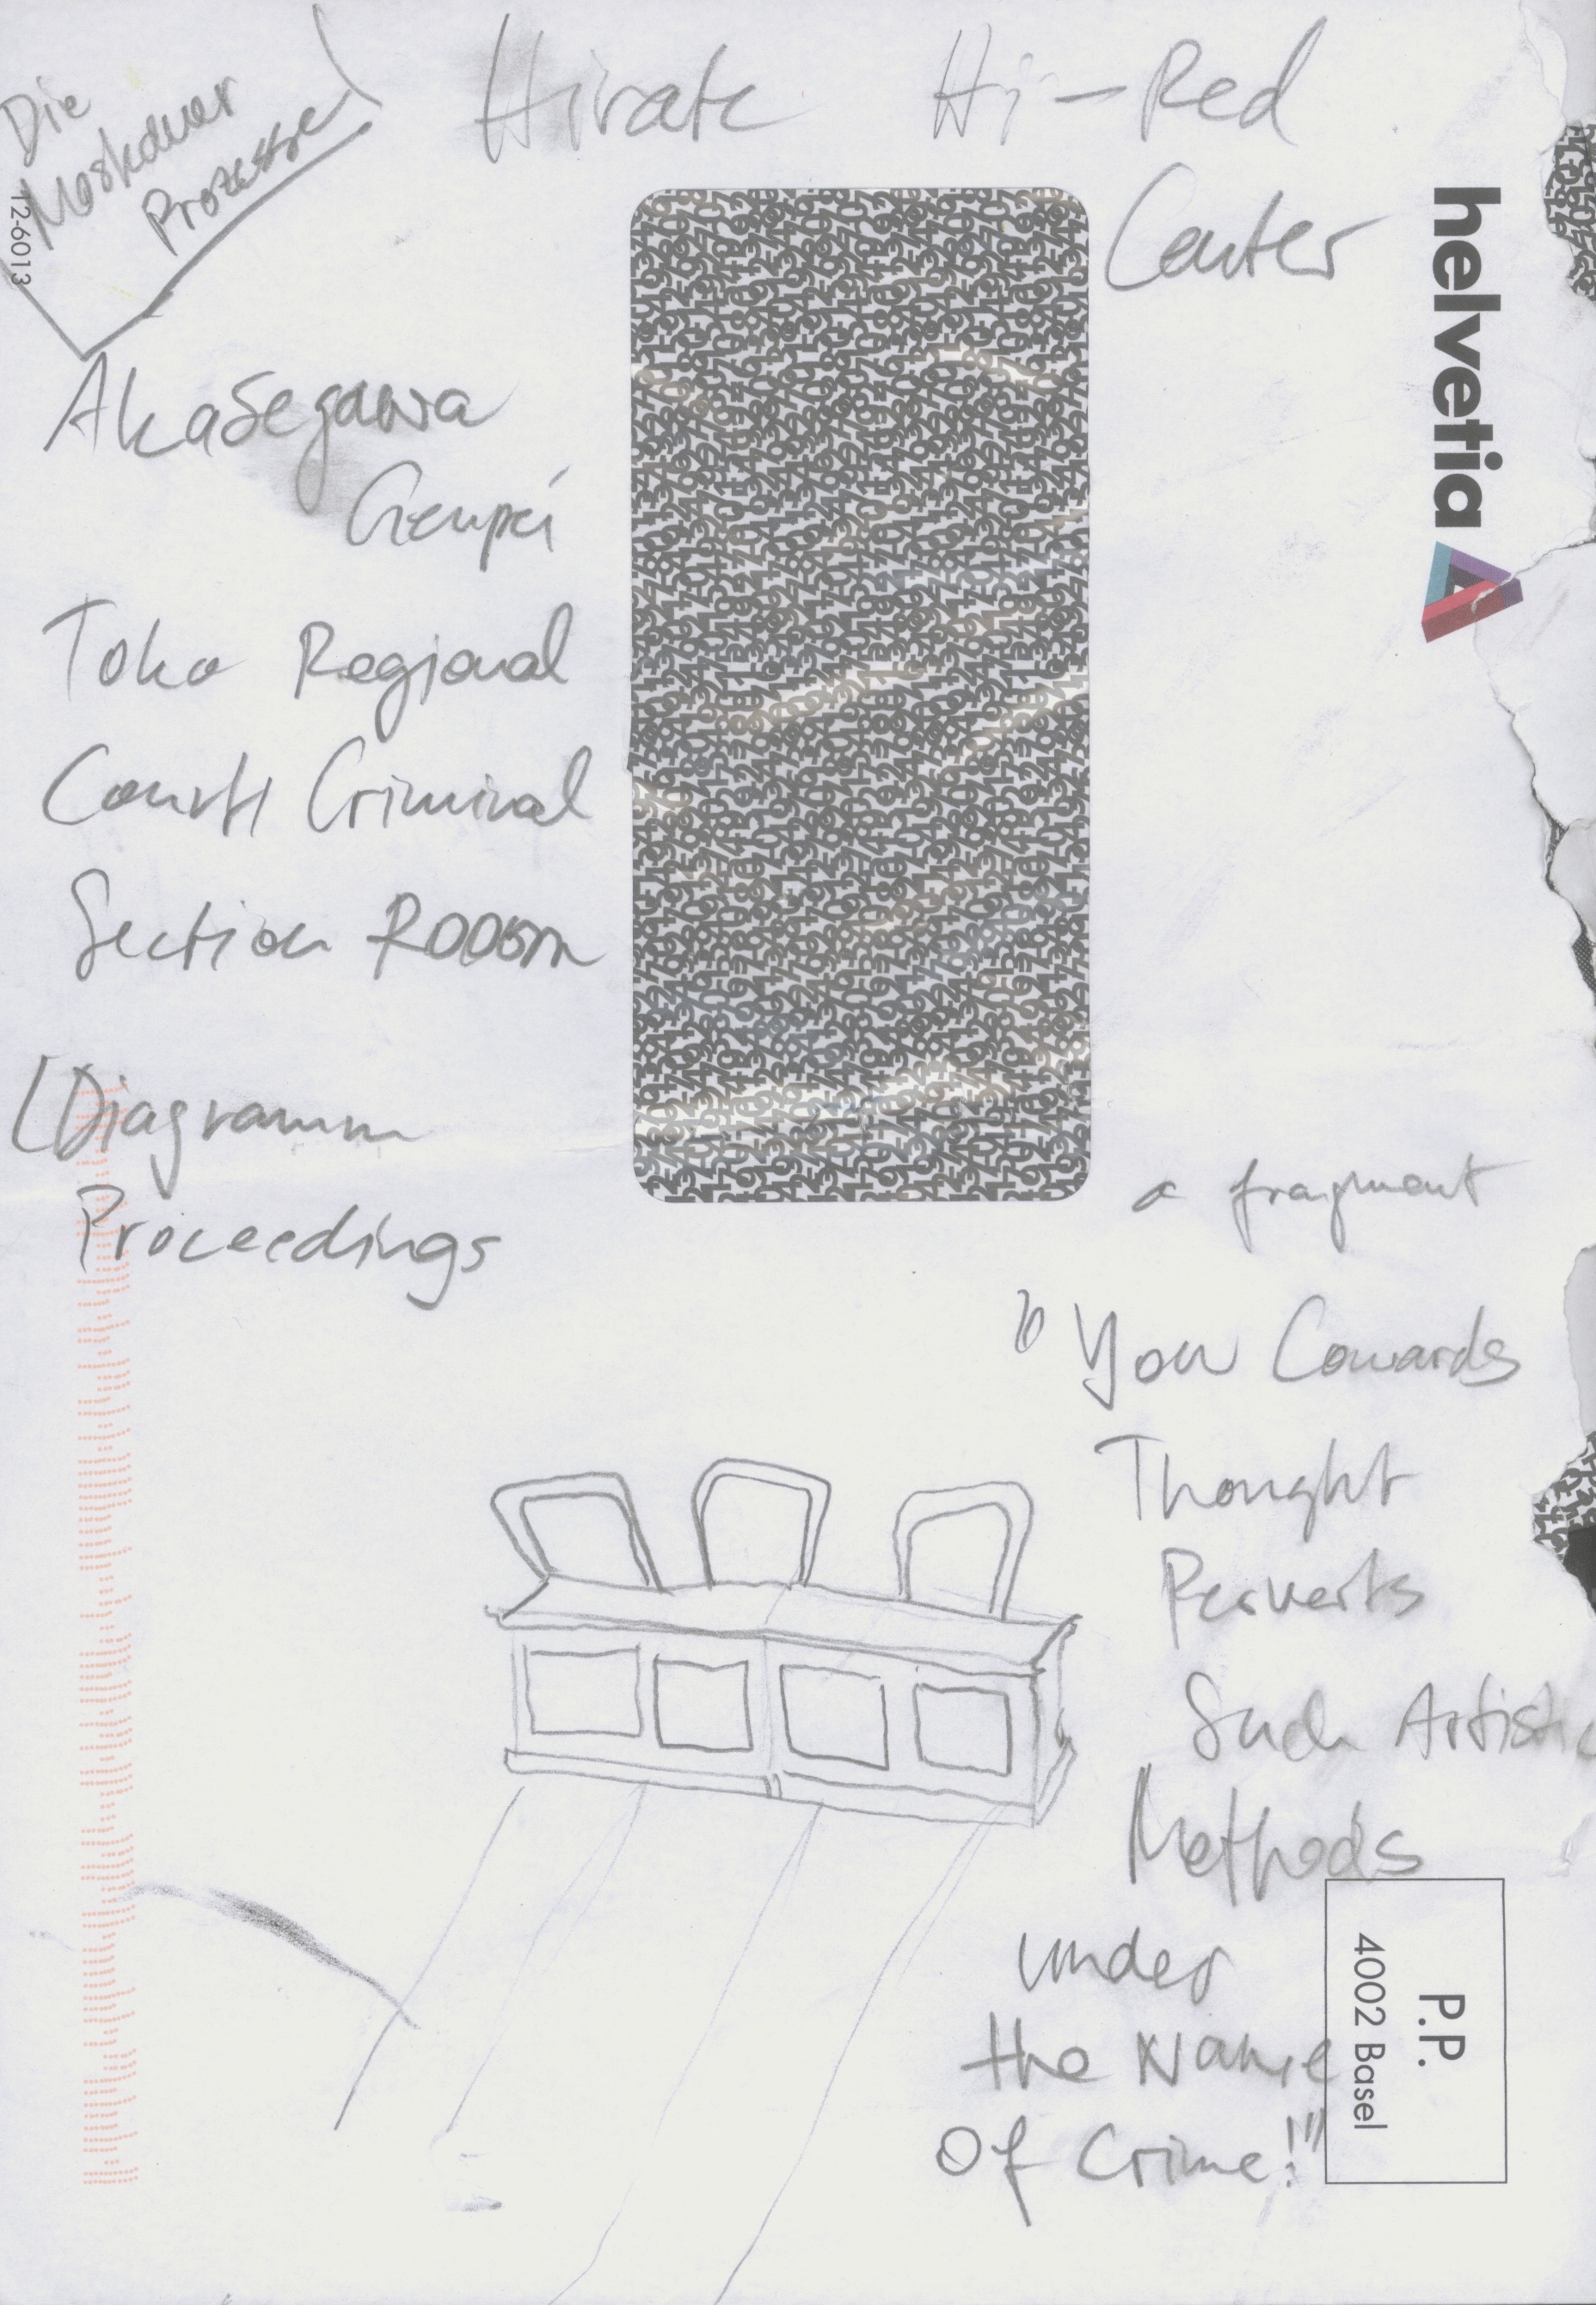 Die
Moskauer
Prozesse
12-6013
Hirate Hi-Red
Center
helvetia
Akasegawa
Genpei
Toko Regional
Court Criminal
Section Room
(Diagramm
Proceedings
a fragment
"You Cowards
Thought
Perverts
Such Artistic
Methods
under
the Name
Of Crime!"
P.P.
4002 Basel